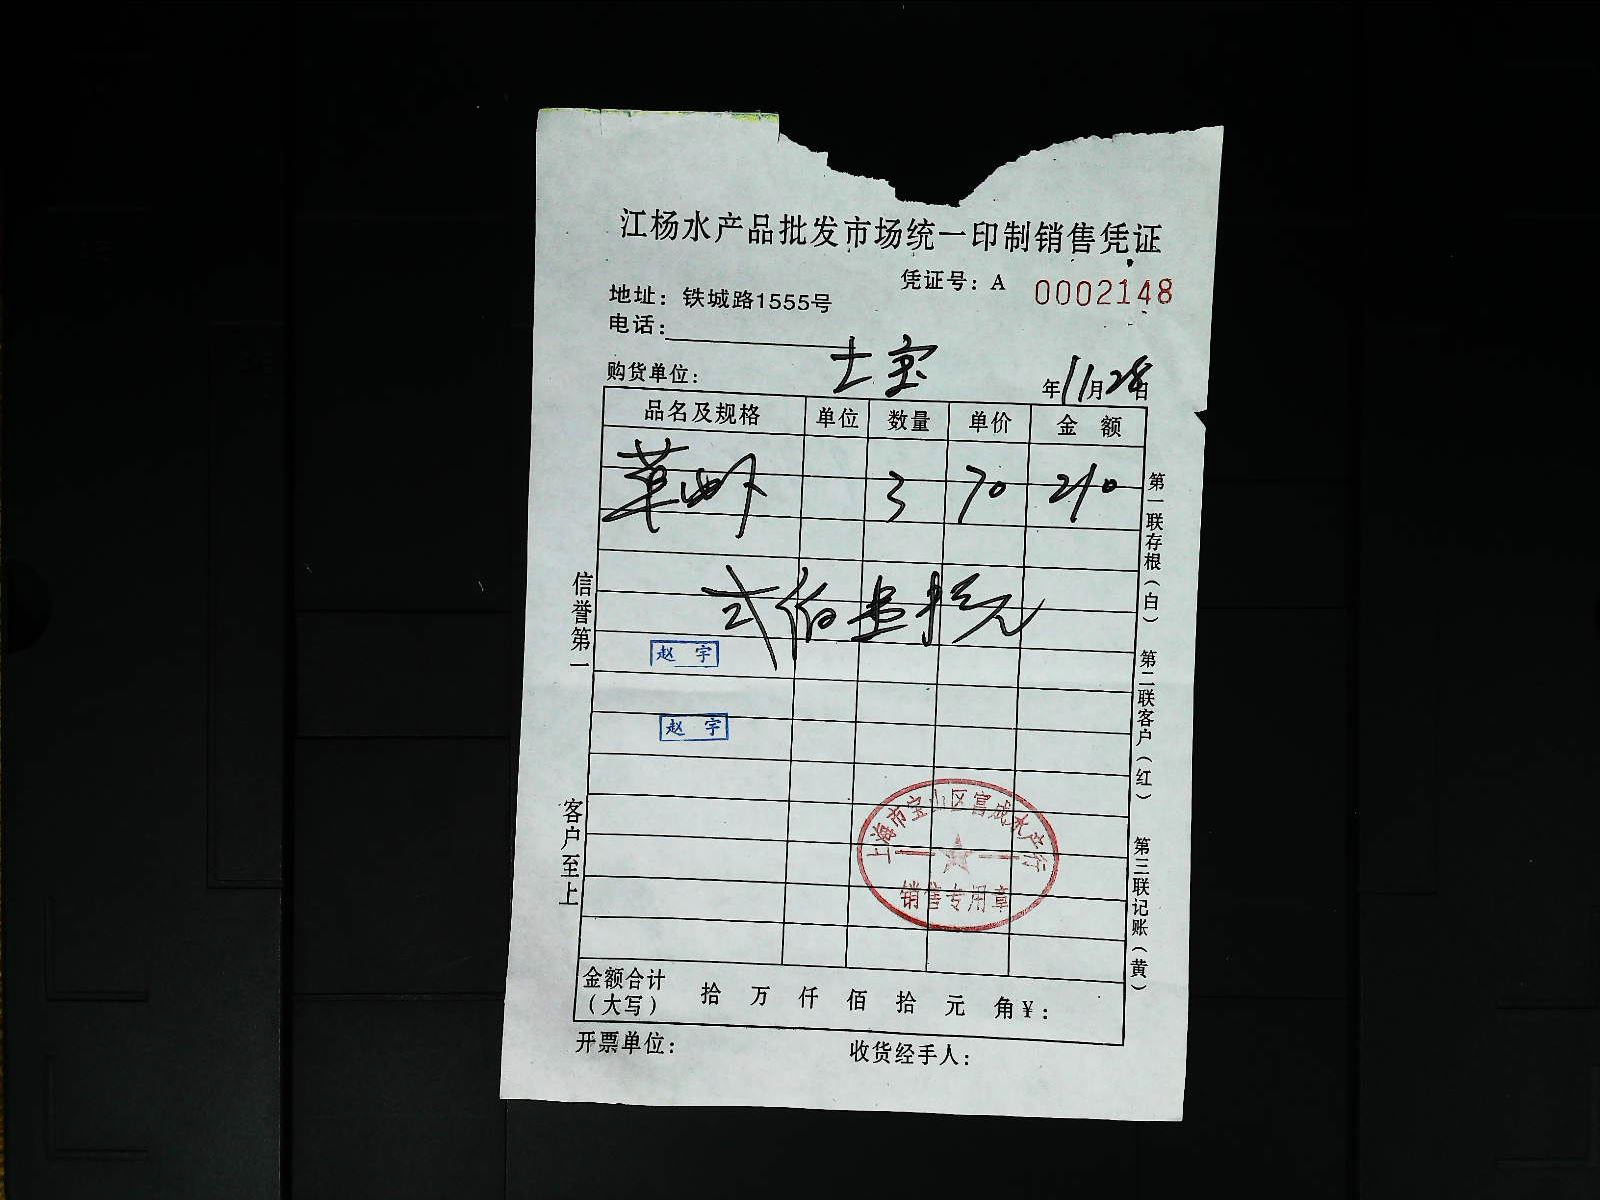 江杨水产品批发市场统一印制销售凭证
凭证号：A 0002148
地址：铁城路1555号
电话：
购货单位： 士宝 年11月28日
品名及规格 单位 数量 单价 金额
草虾 3 70 210
弍佰壹拾元
赵宇
赵宇
上海市宝山区富成水产行
销售专用章
金额合计（大写） 拾 万 仟 佰 拾 元 角 ¥：
开票单位： 收货经手人：
信誉第一
客户至上
第一联存根（白）
第二联客户（红）
第三联记账（黄）